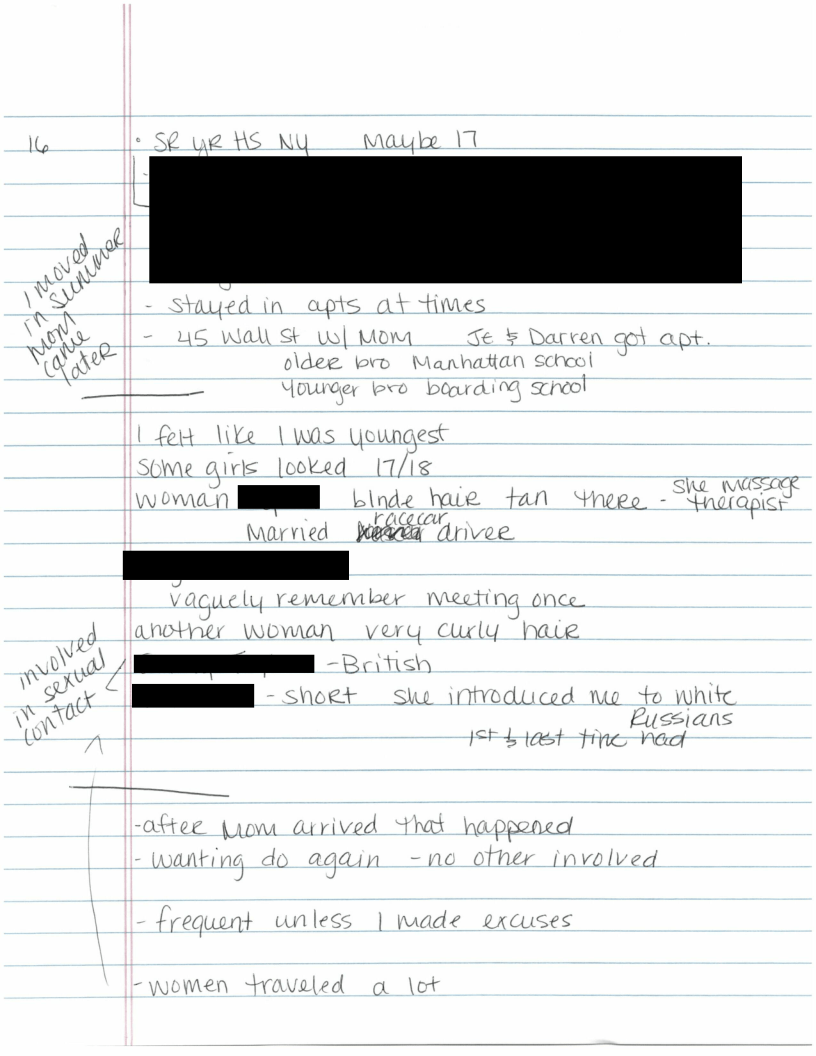 16
• SR yR HS NY Maybe 17
I moved
in Summer
Mom
came
later
- stayed in apts at times
- 45 Wall St w/ MOM JE & Darren got apt.
older bro Manhattan school
younger bro boarding school
I felt like I was youngest
some girls looked 17/18
woman blnde hair tan there - she massage
therapist
Married racecar driver
vaguely remember meeting once
another woman very curly hair
involved
in sexual
contact
-British
- short she introduced me to white
Russians
1st & last time had
-after Mom arrived that happened
- wanting do again - no other involved
- frequent unless I made excuses
- women traveled a lot